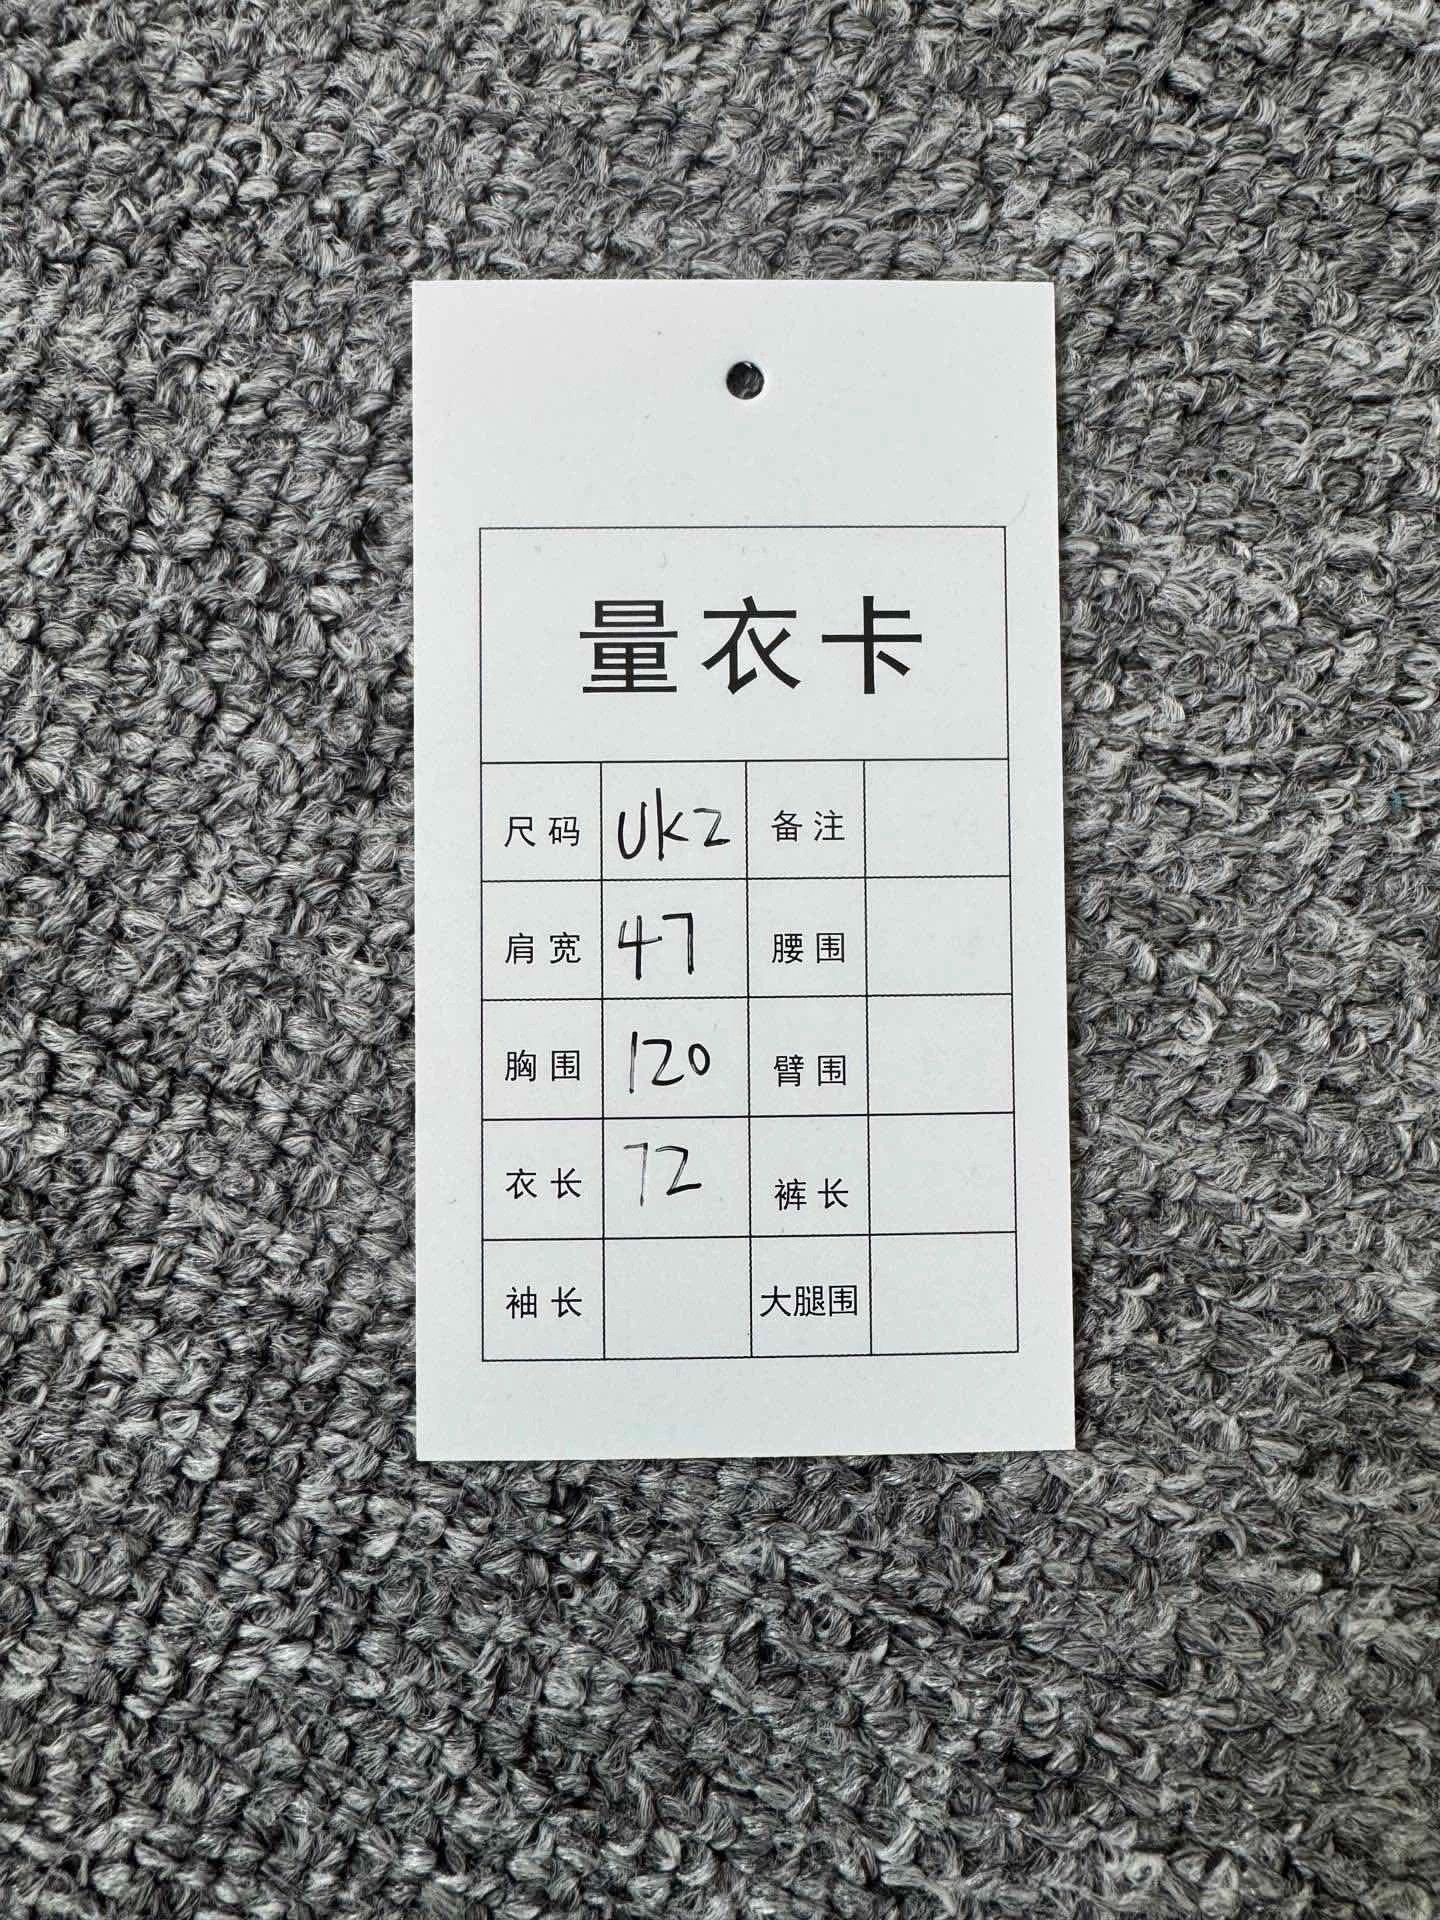 量衣卡
尺码 UK2 备注
肩宽 47 腰围
胸围 120 臂围
衣长 72 裤长
袖长 大腿围